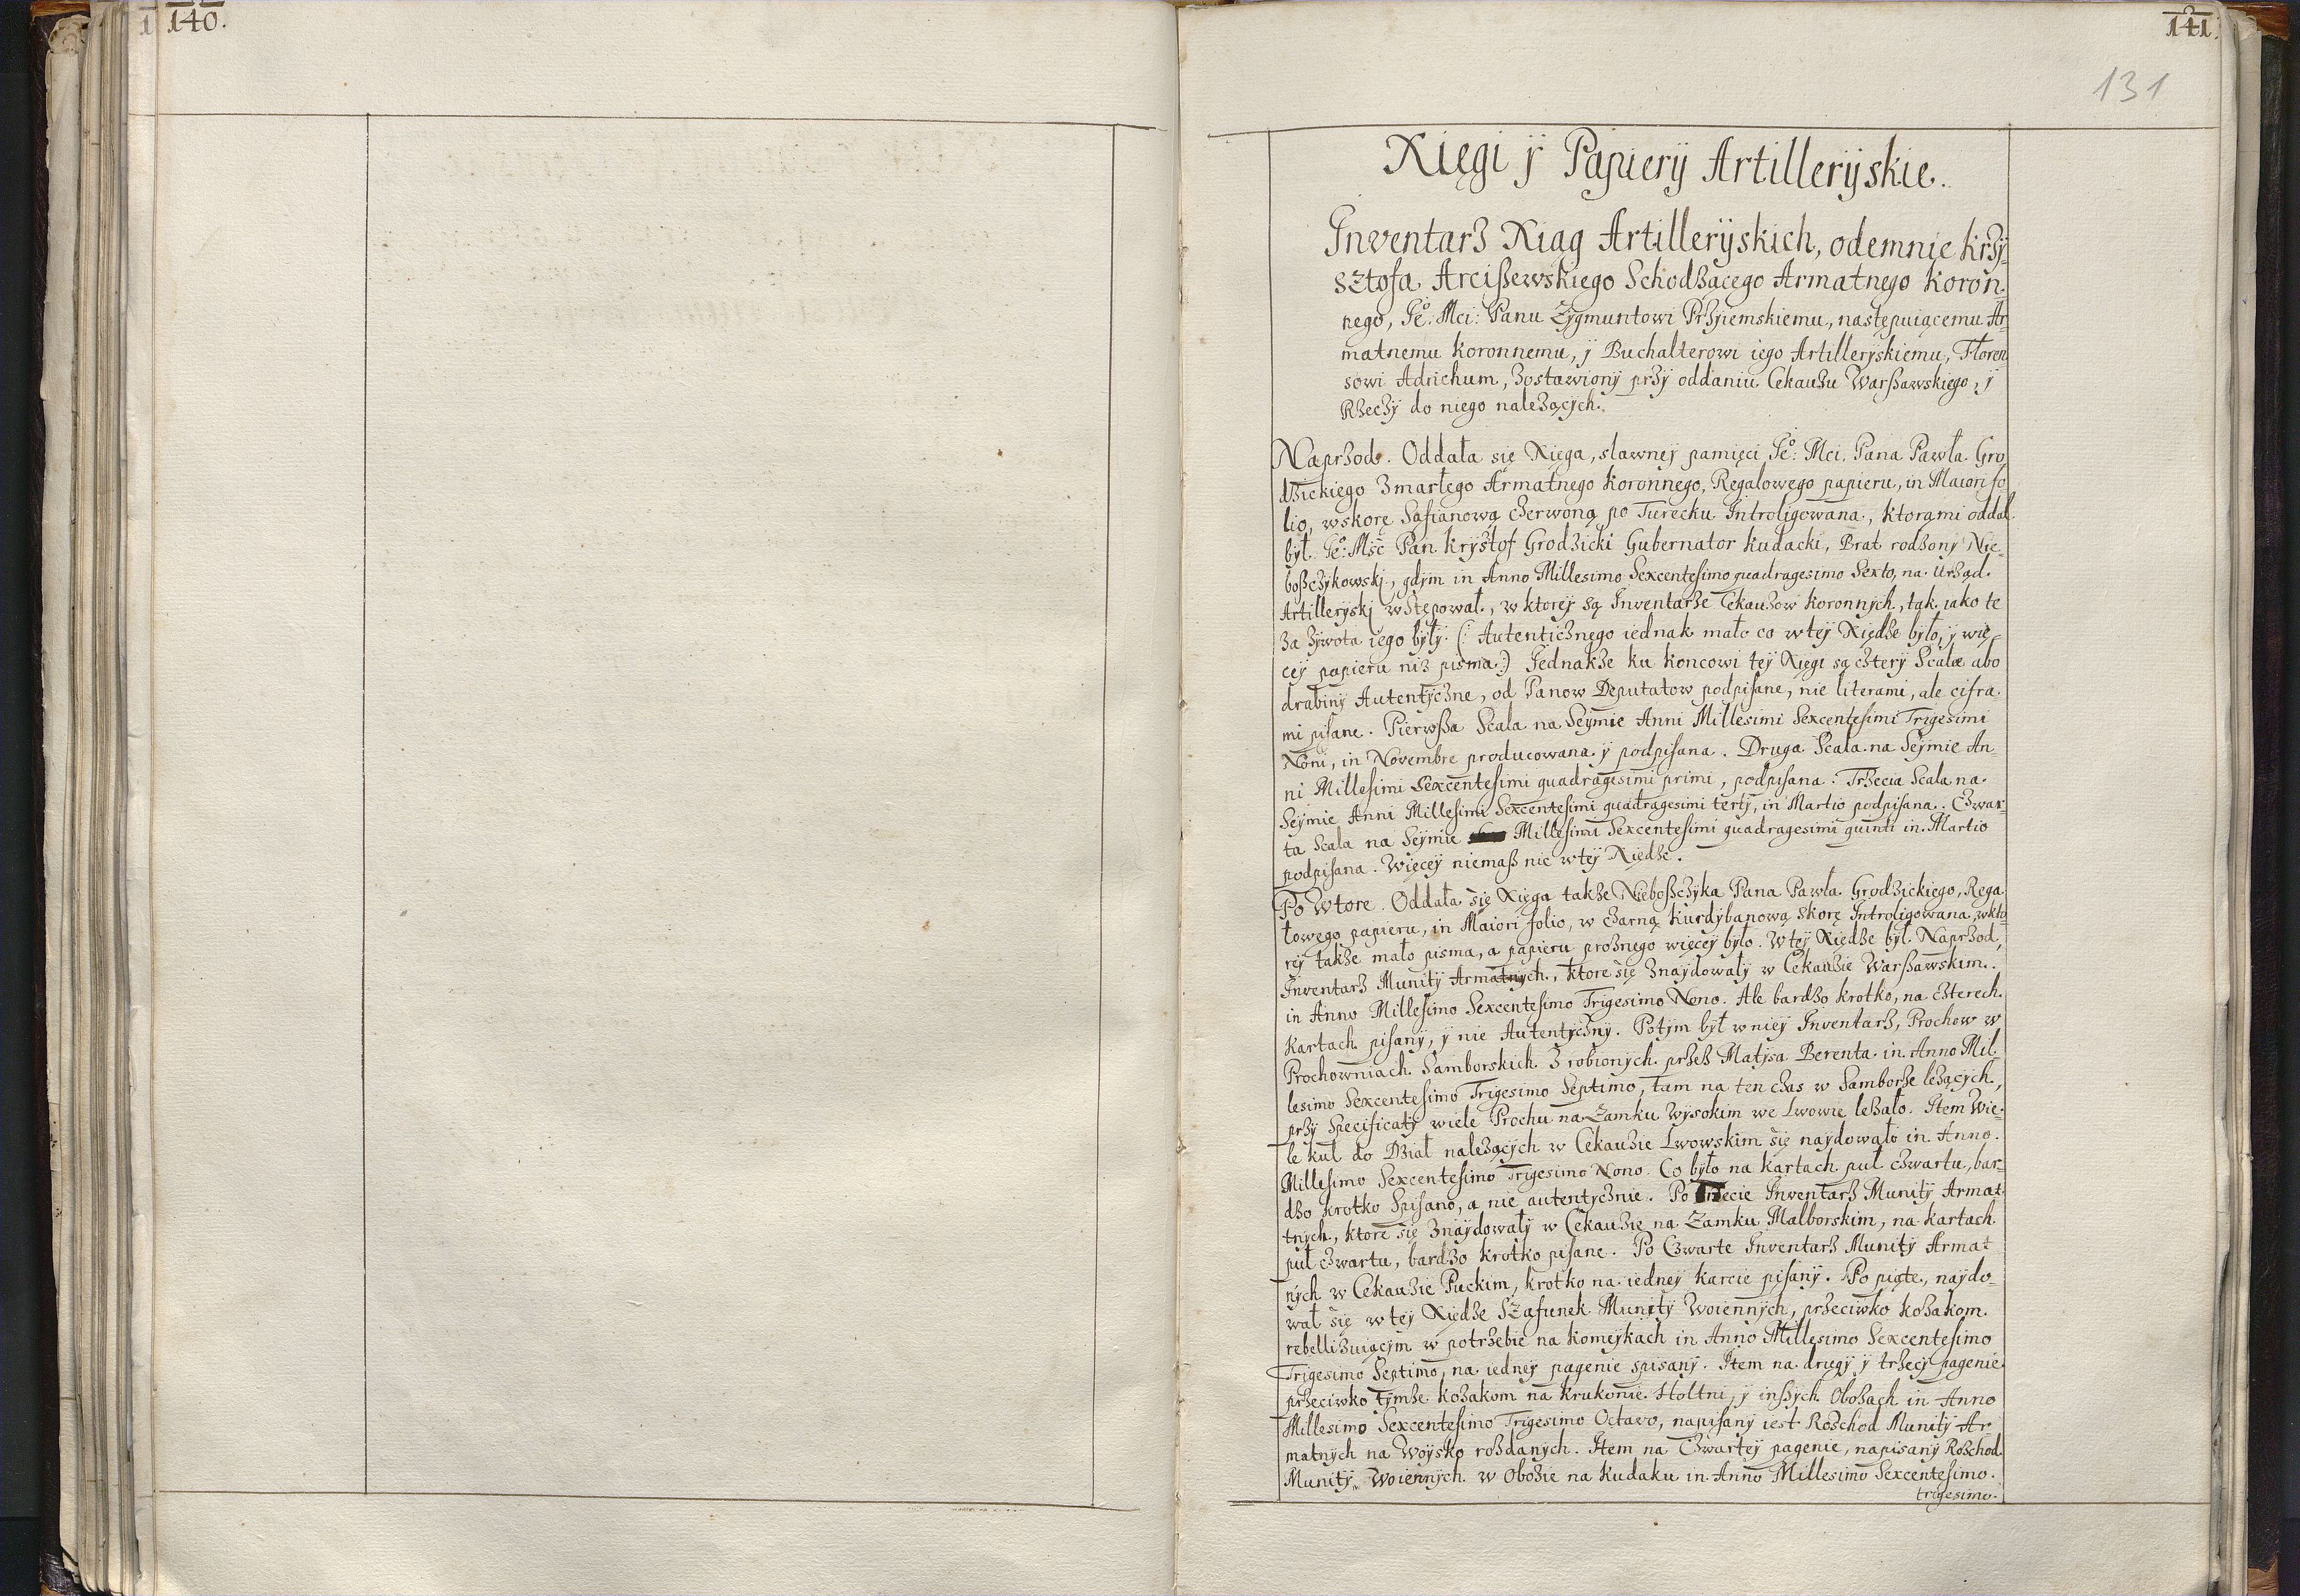 140.
141.
131
Xięgi ÿ Papierÿ Artillerÿskie.
Inwentarz Xiąg Artillerÿskich, odemnie Krzÿ-
sztofa Arcißewskiego Schodzącego Armatnego Koron-
nego, Jeº. Mci: Panu Zÿgmuntowi Przÿiemskiemu, następuiącemu Ar-
matnemu Koronnemu, ÿ Buchalterowi iego Artillerÿskiemu, Floren
sowi Adrichum, zostawionÿ przÿ oddaniu Cekauzu Warßawskiego, ÿ
Rzeczÿ do niego należącÿch.
Naprzod. Oddała się Xięga, sławneÿ pamięci Jeº: Mci. Pana Pawła Gro
dzickiego zmarłego Armatnego Koronnego, Regałowego papieru, in Maiori fo
lio, wskorę Safianową czerwoną po Turecku Introligowana, ktorą mi oddał
bÿł. Jeº: Mść Pan Krÿsztof Grodzicki Gubernator Kudacki, Brat rodzonÿ Nie-
boßczÿkowskj, gdÿm in Anno Millesimo Sexcentesimo quadragesimo Sexto, na Urząd
Artillerÿskj wstępował, w ktoreÿ są Inwentarze Cekauzow Koronnÿch, tak iako te
za żÿwota iego bÿłÿ. (: Autenticznego iednak mało co w teÿ Xiędze bÿło, ÿ wię
ceÿ papieru niż pisma:) Jednakże ku koncowi teÿ Xięgi są czterÿ Scalæ abo
drabinÿ Autentÿczne, od Panow Deputatow podpisane, nie literami, ale cifra
mi pisane. Pierwßa Scala na Seÿmie Anni Millesimi Sexcentesimi Trigesimi
Noni, in Novembre producowana ÿ podpisana. Druga Scala na Seÿmie An
ni Millesimi Sexcentesimi quadragesimi primi, podpisana. Trzecia Scala na
Seÿmie Anni Millesimi Sexcentesimi quadragesimi tertÿ, in Martio podpisana. Czwar-
ta Scala na Seÿmie Millesimi Sexcentesimi quadragesimi quinti in Martio
podpisana. Więceÿ niemaß nic w teÿ Xiędze.
Po Wtore. Oddała się Xięga także Nieboßczÿka Pana Pawła Grodzickiego, Rega
łowego papieru, in Maiori folio, w czarną kurdÿbanową skorę Introligowana, wkto-
reÿ także mało pisma, a papieru prożnego więceÿ bÿło. W teÿ Xiędze bÿł Naprzod,
Inwentarz Munitÿ Armatnÿch, ktore się znaÿdowałÿ w Cekauzie Warßawskim
in Anno Millesimo Sexcentesimo Trigesimo Nono. Ale bardzo krotko, na czterech
kartach pisanÿ, ÿ nie Autentÿcznÿ. Potÿm bÿł w nieÿ Inwentarz, Prochow w
Prochowniach Samborskich zrobionÿch przez Matÿsa Berenta in Anno Mil
lesimo Sexcentesimo Trigesimo Septimo, tam na ten czas w Samborze leżącÿch,
przÿ Specificatÿ wiele Prochu na Zamku Wÿsokim we Lwowie leżało. Item Wie-
le kul do Dział należącÿch w Cekauzie Lwowskim się naÿdowało in Anno
Millesimo Sexcentesimo Trigesimo Nono. Co bÿło na kartach puł czwartu, bar-
dzo krotko Spisano, a nie autentÿcznie. Po Trzecie Inwentarz Munitÿ Armat
tnÿch, ktore się znaÿdowałÿ w Cekauzie na Zamku Malborskim, na kartach
puł czwartu, bardzo krotko pisane. Po Czwarte Inwentarz Munitÿ Armat
nÿch w Cekauzie Puckim, krotko na iedneÿ karcie pisanÿ. Po piąte, naÿdo-
wał się w teÿ Xiędze Szafunek Munitÿ Woiennÿch, przeciwko Kozakom
rebellizuiącÿm w potrzebie na Komeÿkach in Anno Millesimo Sexcentesimo
Trigesimo Septimo, na iedneÿ pagenie spisanÿ. Item na drugÿ ÿ trzecÿ pagenie
przeciwko tÿmże Kozakom na Krukonie Holtni, ÿ inßÿch Obozach in Anno
Millesimo Sexcentesimo Trigesimo Octavo, napisanÿ iest Rozchod Munitÿ Ar
matnÿch na Woÿsko rozdanÿch. Item na Czwarteÿ pagenie, napisanÿ Rozchod
Munitÿ Woiennÿch w Obozie na Kudaku in Anno Millesimo Sexcentesimo
trigesimo.